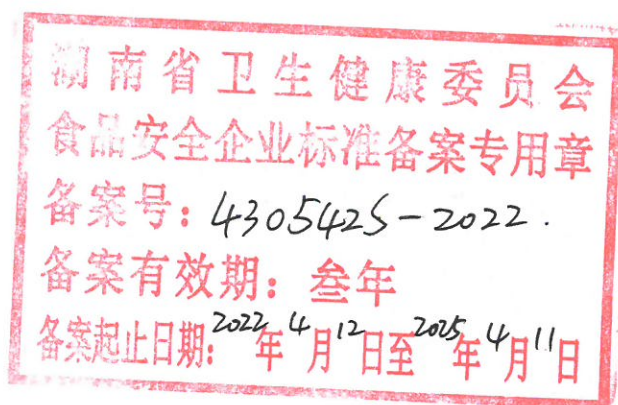 湖南省卫生健康委员会
食品安全企业标准备案专用章
备案号：430542S-2022.
备案有效期：叁年
备案起止日期：2022年4月12日至2025年4月11日